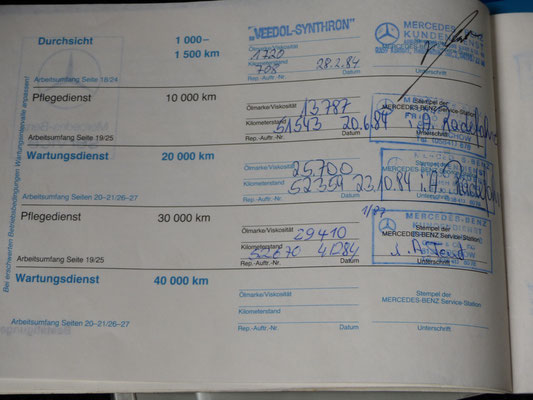 Bei erschwerten Betriebsbedingungen Wartungsintervalle anpassen!
Durchsicht 1 000–
1 500 km
"VEEDOL-SYNTHRON"
Ölmarke/Viskosität
1720
Kilometerstand
708 28.2.84
Rep.-Auftr.-Nr. Datum
MERCEDES
KUNDENDIENST
Unterschrift
Arbeitsumfang Seite 18/24
Pflegedienst 10 000 km
Ölmarke/Viskosität
13787
Kilometerstand
51543 20.6.84
Rep.-Auftr.-Nr. Datum
Stempel der
MERCEDES-BENZ Service-Station
i.A.
Arbeitsumfang Seite 19/25
Wartungsdienst 20 000 km
25.700
Kilometerstand
52354 23.10.84 i.A.
Arbeitsumfang Seiten 20–21/26–27
Pflegedienst 30 000 km
Ölmarke/Viskosität
29410
Kilometerstand
Rep.-Auftr.-Nr. Datum
MERCEDES-BENZ
KUNDENDIENST
MERCEDES-BENZ Service-Station
Unterschrift
Arbeitsumfang Seite 19/25
Wartungsdienst 40 000 km
Ölmarke/Viskosität
Kilometerstand
Rep.-Auftr.-Nr. Datum
Stempel der
MERCEDES-BENZ Service-Station
Unterschrift
Arbeitsumfang Seiten 20–21/26–27